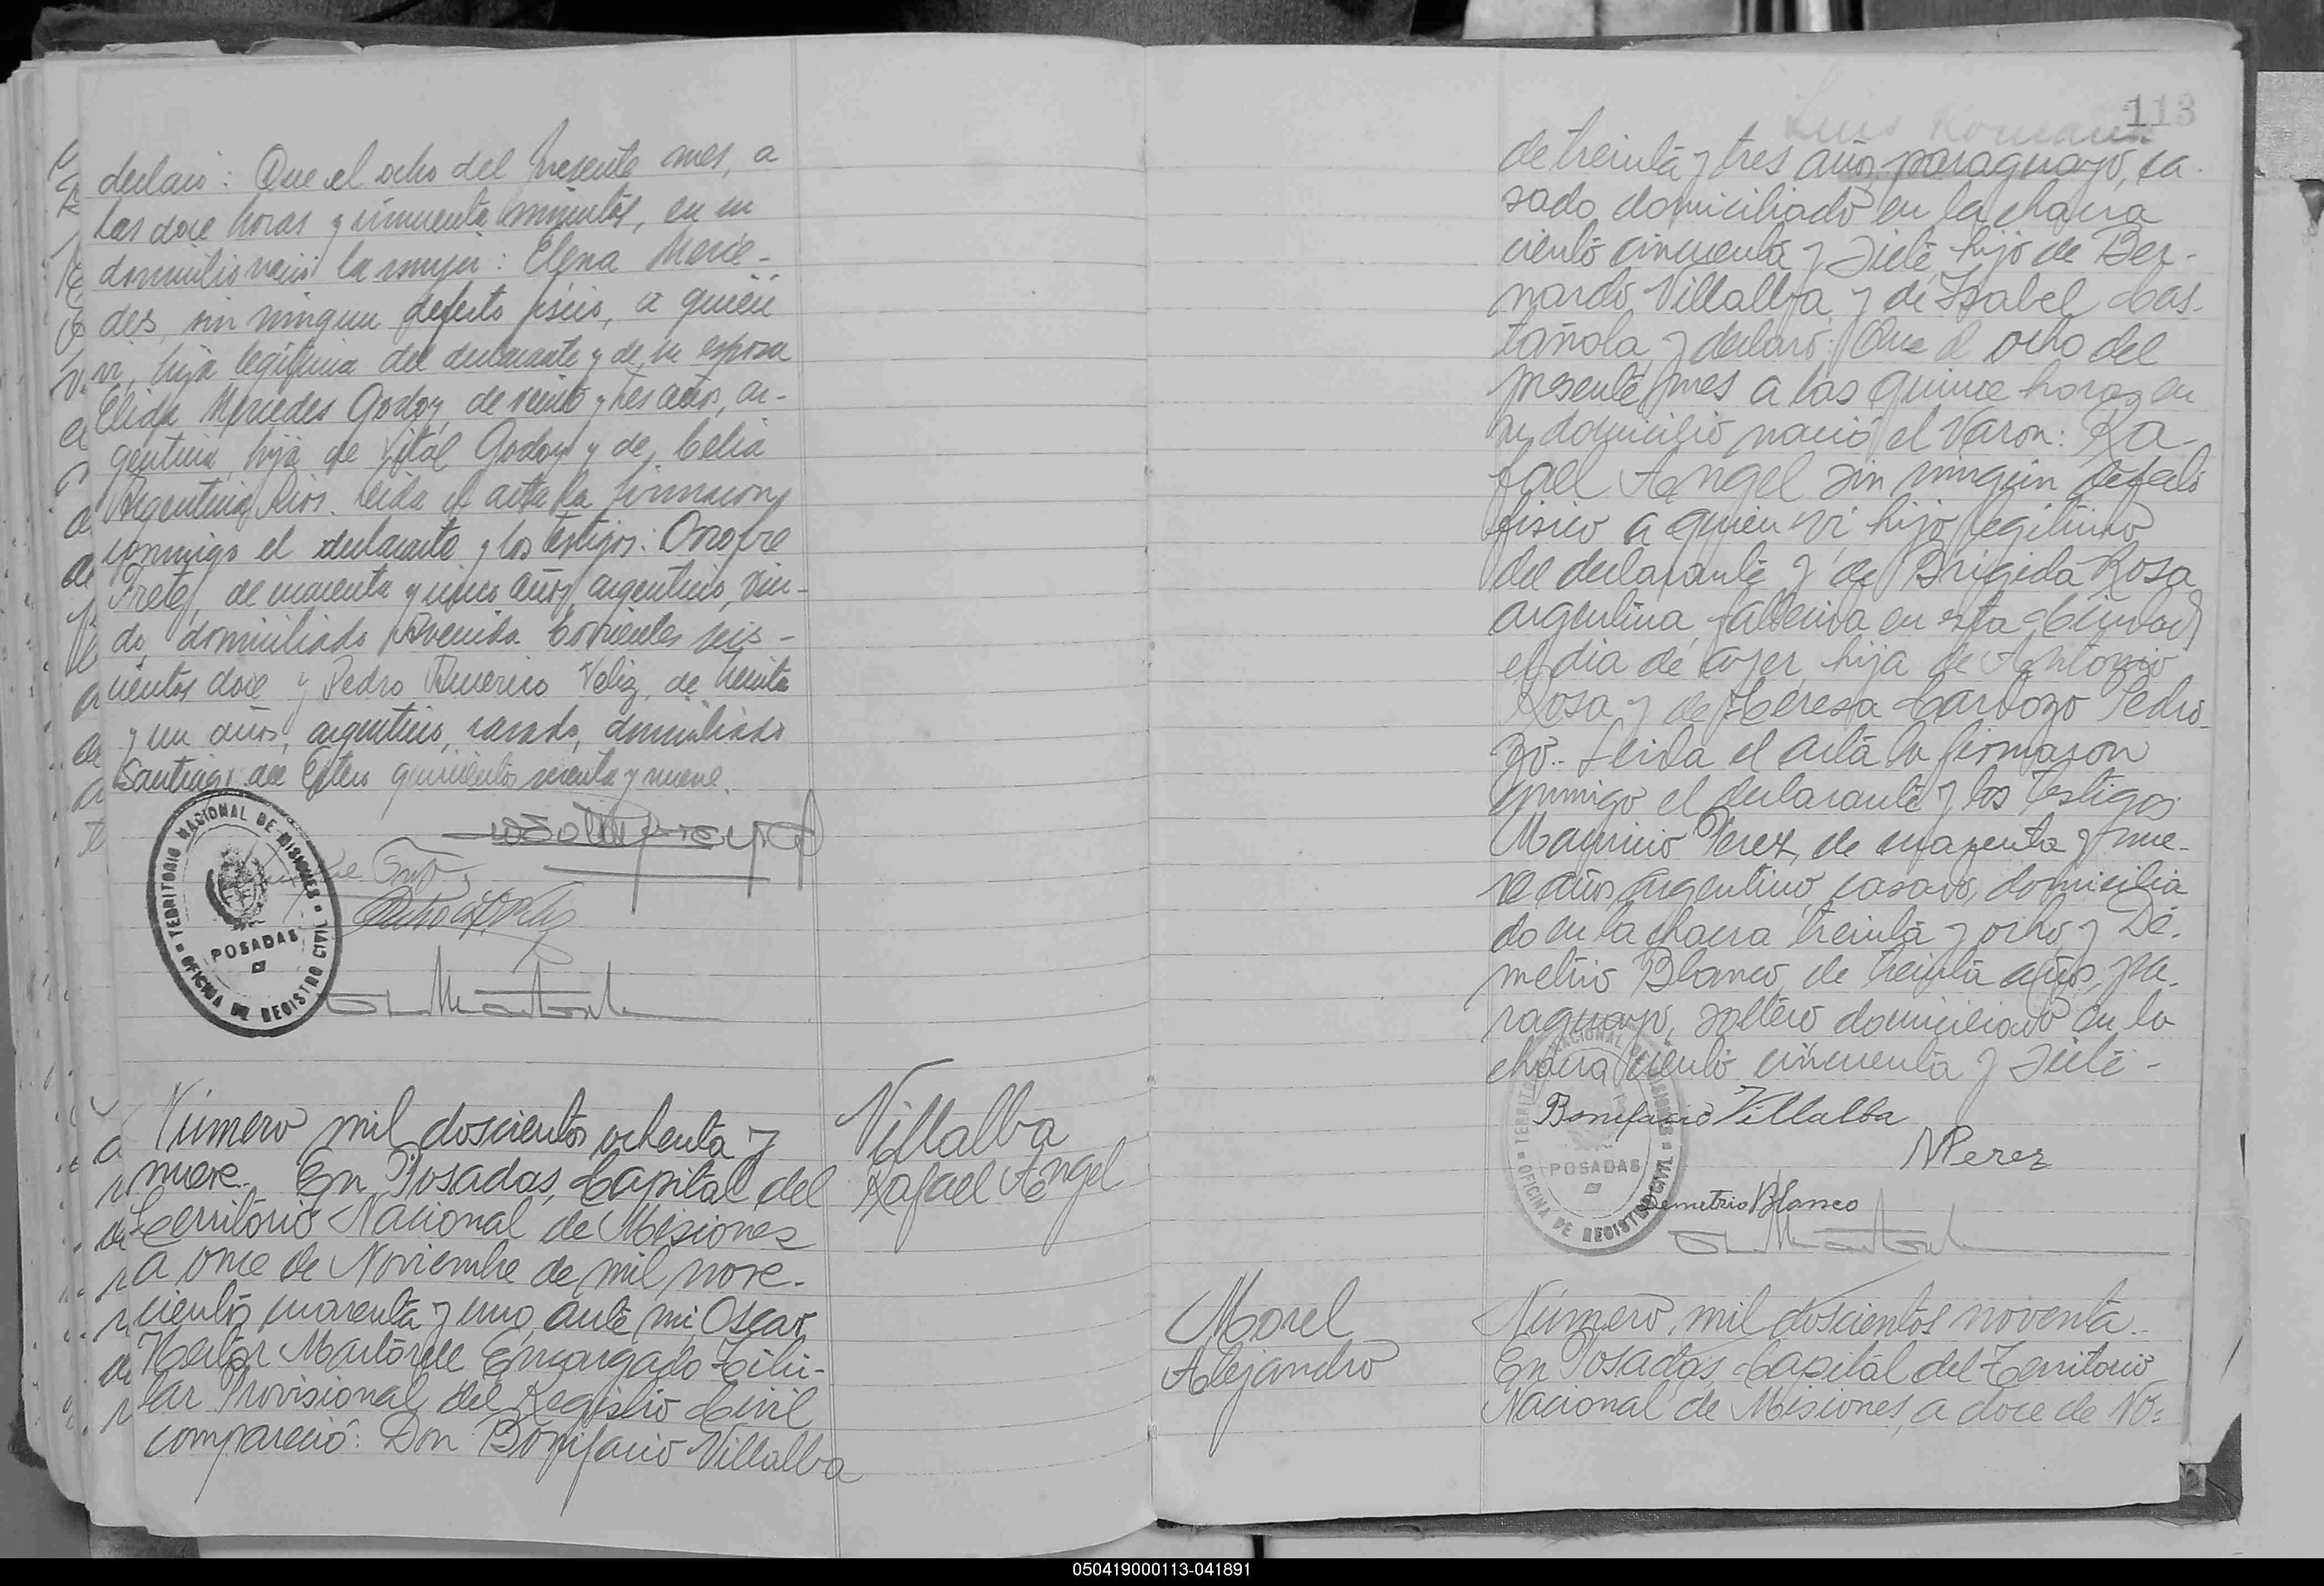 declaró: Que el ocho del presente mes, a
las doce horas y cincuenta minutos, en su
domicilio nació la mujer: Elena Merce-
des, sin ningun defecto físico, a quien
vi, hija legítima del declarante y de su esposa
Elida Mercedes Godoy, de veinte y tres años, ar-
gentina, hija de Vital Godoy y de Celia
Argentina Rios. Leida el acta la firmaron
conmigo el declarante y los testigos: Onofre
Prete, de cuarenta y cinco años, argentino, viu-
do, domiciliado Avenida Corrientes seis-
cientos doce y Pedro Americo Veliz, de treinta
y un años, argentino, casado, domiciliado
Santiago del Estero quinientos sesenta y nueve.
TERRITORIO NACIONAL DE MISIONES
POSADAS
OFICINA DE REGISTRO CIVIL
Número mil doscientos ochenta y
nueve. En Posadas, Capital del
Territorio Nacional de Misiones
a once de Noviembre de mil nove-
cientos cuarenta y uno, ante mi, Oscar
Hector Martorell Encargado Titu-
lar Provisional del Registro Civil
compareció: Don Bonifacio Villalba
Villalba
Rafael Angel
113
Luis
de treinta y tres años, paraguayo, ca-
sado, domiciliado en la chacra
ciento cincuenta y siete, hijo de Ber-
nardo Villalba y de Isabel Cas-
tañola, y declaró: Que el ocho del
presente mes a las quince horas en
su domicilio nació el Varon: Ra-
fael Angel sin ningún defecto
fisico a quien vi hijo legitimo
del declarante y de Brigida Rosa
argentina, fallecida en esta Ciudad
el dia de ayer, hija de Antonio
Rosa y de Teresa Cardozo Pedro
zo.- Leida el acta la firmaron
conmigo el declarante y los testigos
Mauricio Perez, de cuarenta y nue-
ve años, argentino, casado, domicilia
do en la chacra treinta y ocho, y De-
metrio Blanco, de treinta años, pa-
raguayo, soltero domiciliado en la
chacra ciento cincuenta y siete-
Bonifacio Villalba
MPerez
Demetrio Blanco
TERRITORIO NACIONAL DE MISIONES
POSADAS
OFICINA DE REGISTRO CIVIL
Morel
Alejandro
Número, mil doscientos noventa.-
En Posadas, Capital del Territorio
Nacional de Misiones, a doce de No-
050419000113-041891